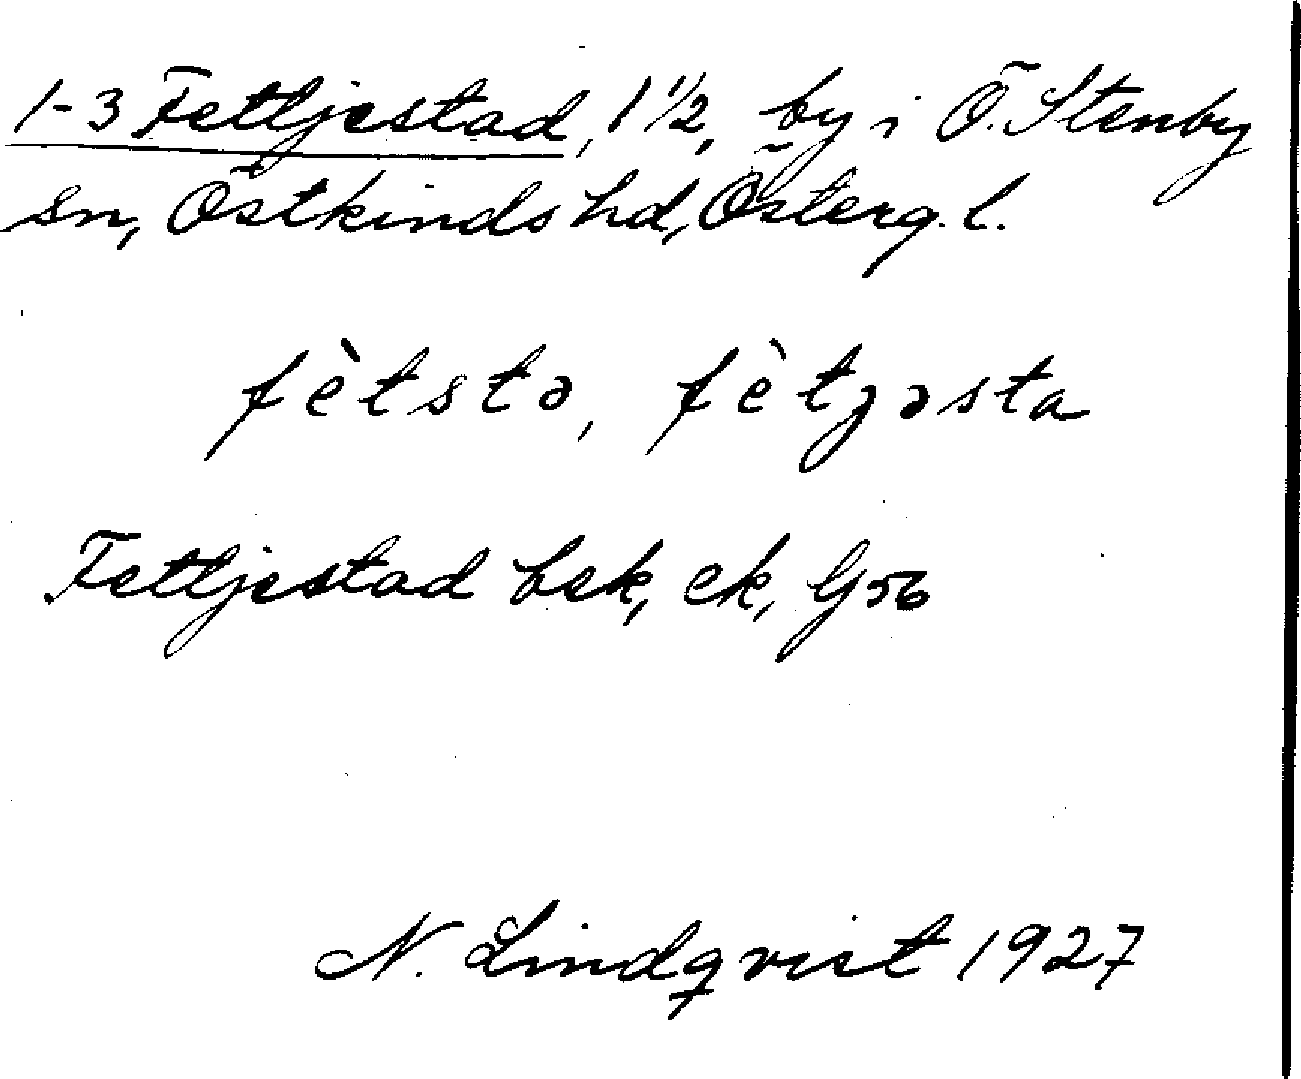 1-3 Fettjestad, 1 1/2, by i Ö. Stenby
sn, Östkinds hd, Österg. l.
fètstə, fètjəsta
Fettjestad bek, ek, Gj56
N. Lindqvist 1927